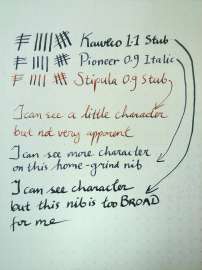 Kaweco 1.1 Stub
Pioneer 0.9 Italic
Stipula 0.9 Stub
I can see a little character
but not very apparent
I can see more character
on this home-grind nib
I can see character
but this nib is too BROAD
for me